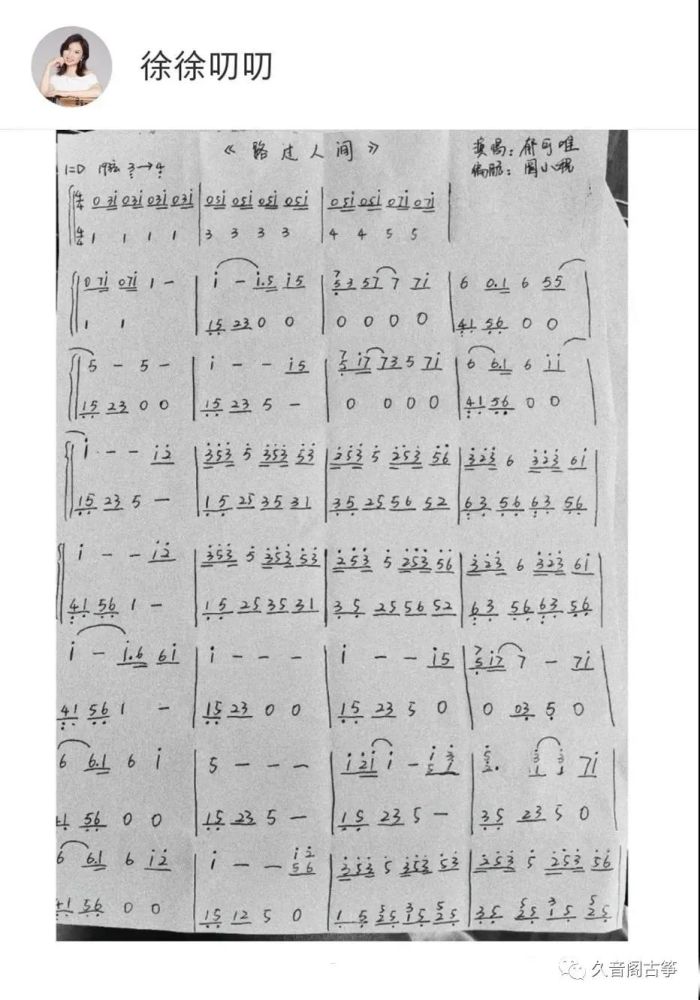 徐徐叨叨
《路过人间》
演唱:郁可唯
1=D
编配:
0 3i 0 3i 0 3i 0 3i | 0 5i 0 5i 0 5i 0 5i | 0 5i 0 5i 0 7i 0 7i
4/4 1 1 1 1 | 3 3 3 3 | 4 4 5 5
0 7i 0 7i 1 - | i - i.5 i5 | 5 3 57 7 7i | 6 0.1 6 55
1 1 | 15 23 0 0 | 0 0 0 0 | 41 56 0 0
5 - 5 - | i - - i5 | 5 i7 73 5 7i | 6 6.1 6 ii
15 23 0 0 | 15 23 5 - | 0 0 0 0 | 41 56 0 0
i - - i2 | 353 5 353 53 | 253 5 253 56 | 323 6 323 6i
15 23 5 - | 15 25 35 31 | 35 25 56 52 | 63 56 63 56
i - - i2 | 353 5 353 53 | 253 5 253 56 | 323 6 323 6i
41 56 1 - | 15 25 35 31 | 35 25 56 52 | 63 56 63 56
i - i.6 6i | i - - - | i - - i5 | 5 i7 7 - 7i
41 56 1 - | 15 23 0 0 | 15 23 5 0 | 0 03 5 0
6 6.1 6 i | 5 - - - | i 2i i -
41 56 0 0 | 15 23 5 - | 15 23 5 - | 35 23 5 0
6 6.1 6 i2 | i - - | 253 5 353 53 | 253 5 253 56
41 56 0 0 | 15 12 5 0
久音阁古筝